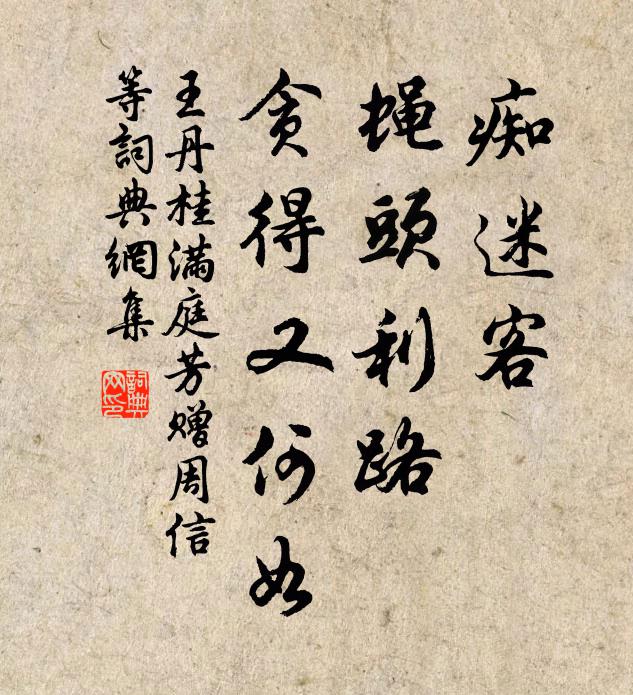 痴迷客
蝇頭利路
貪得又何如
王丹桂满庭芳赠周信
等詞典網集
詞典
网印